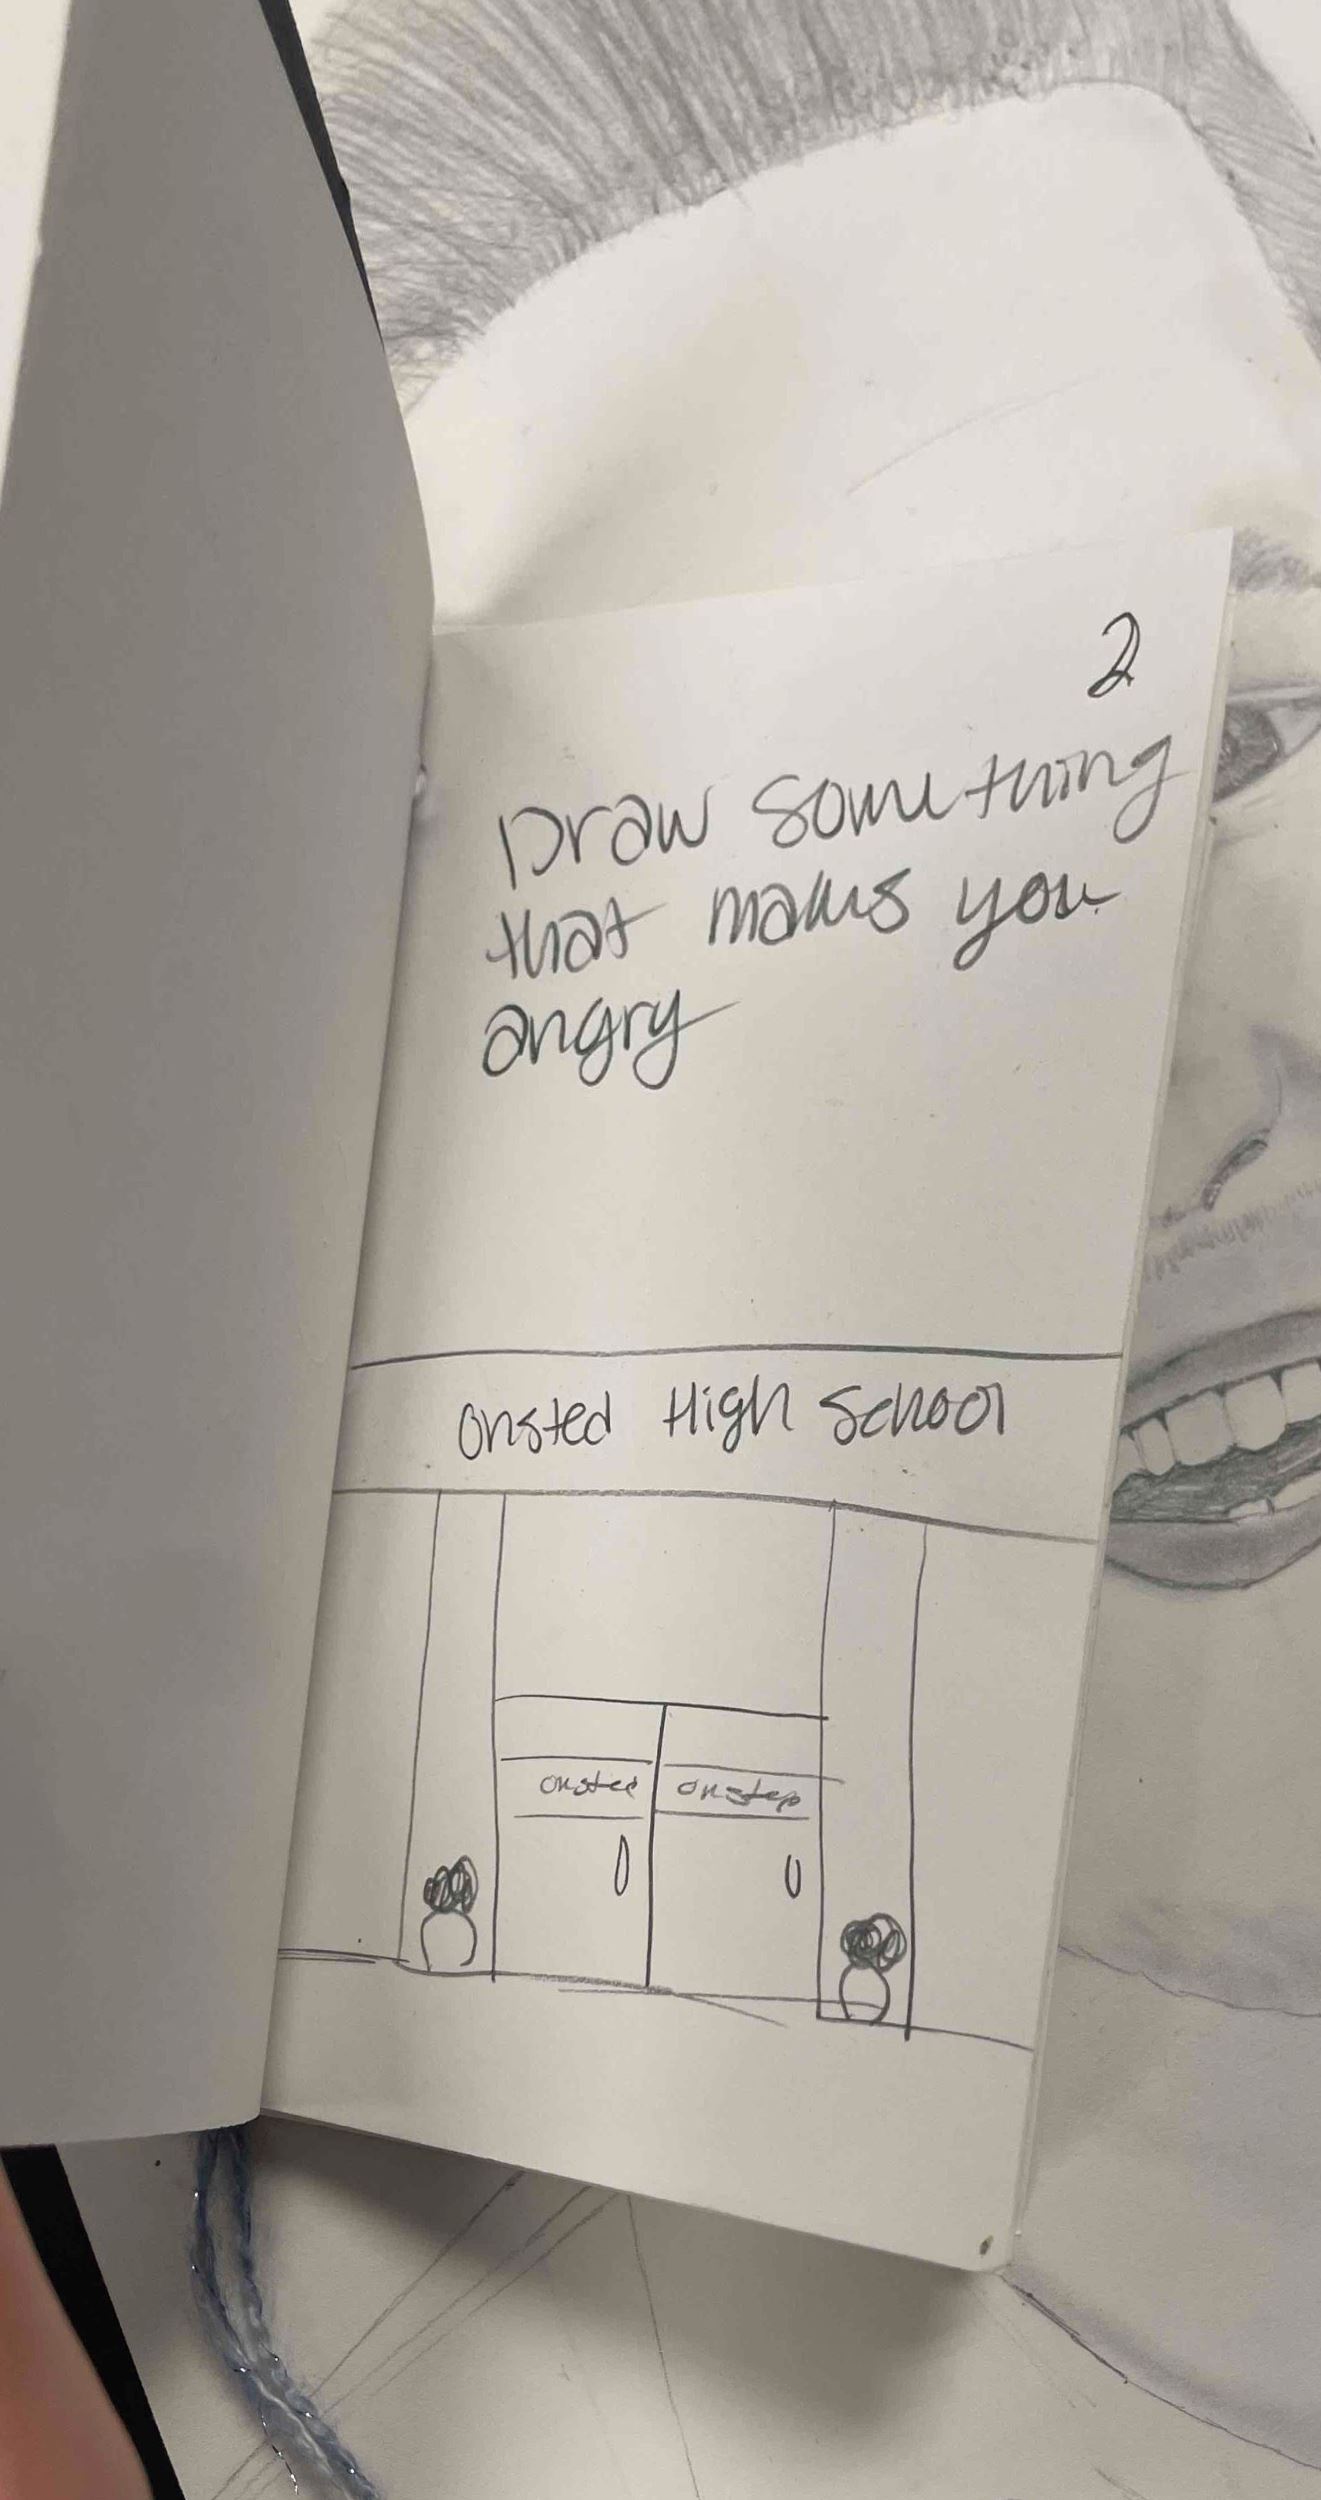 2
Draw something
that makes you
angry
Onsted High School
onsted onsted